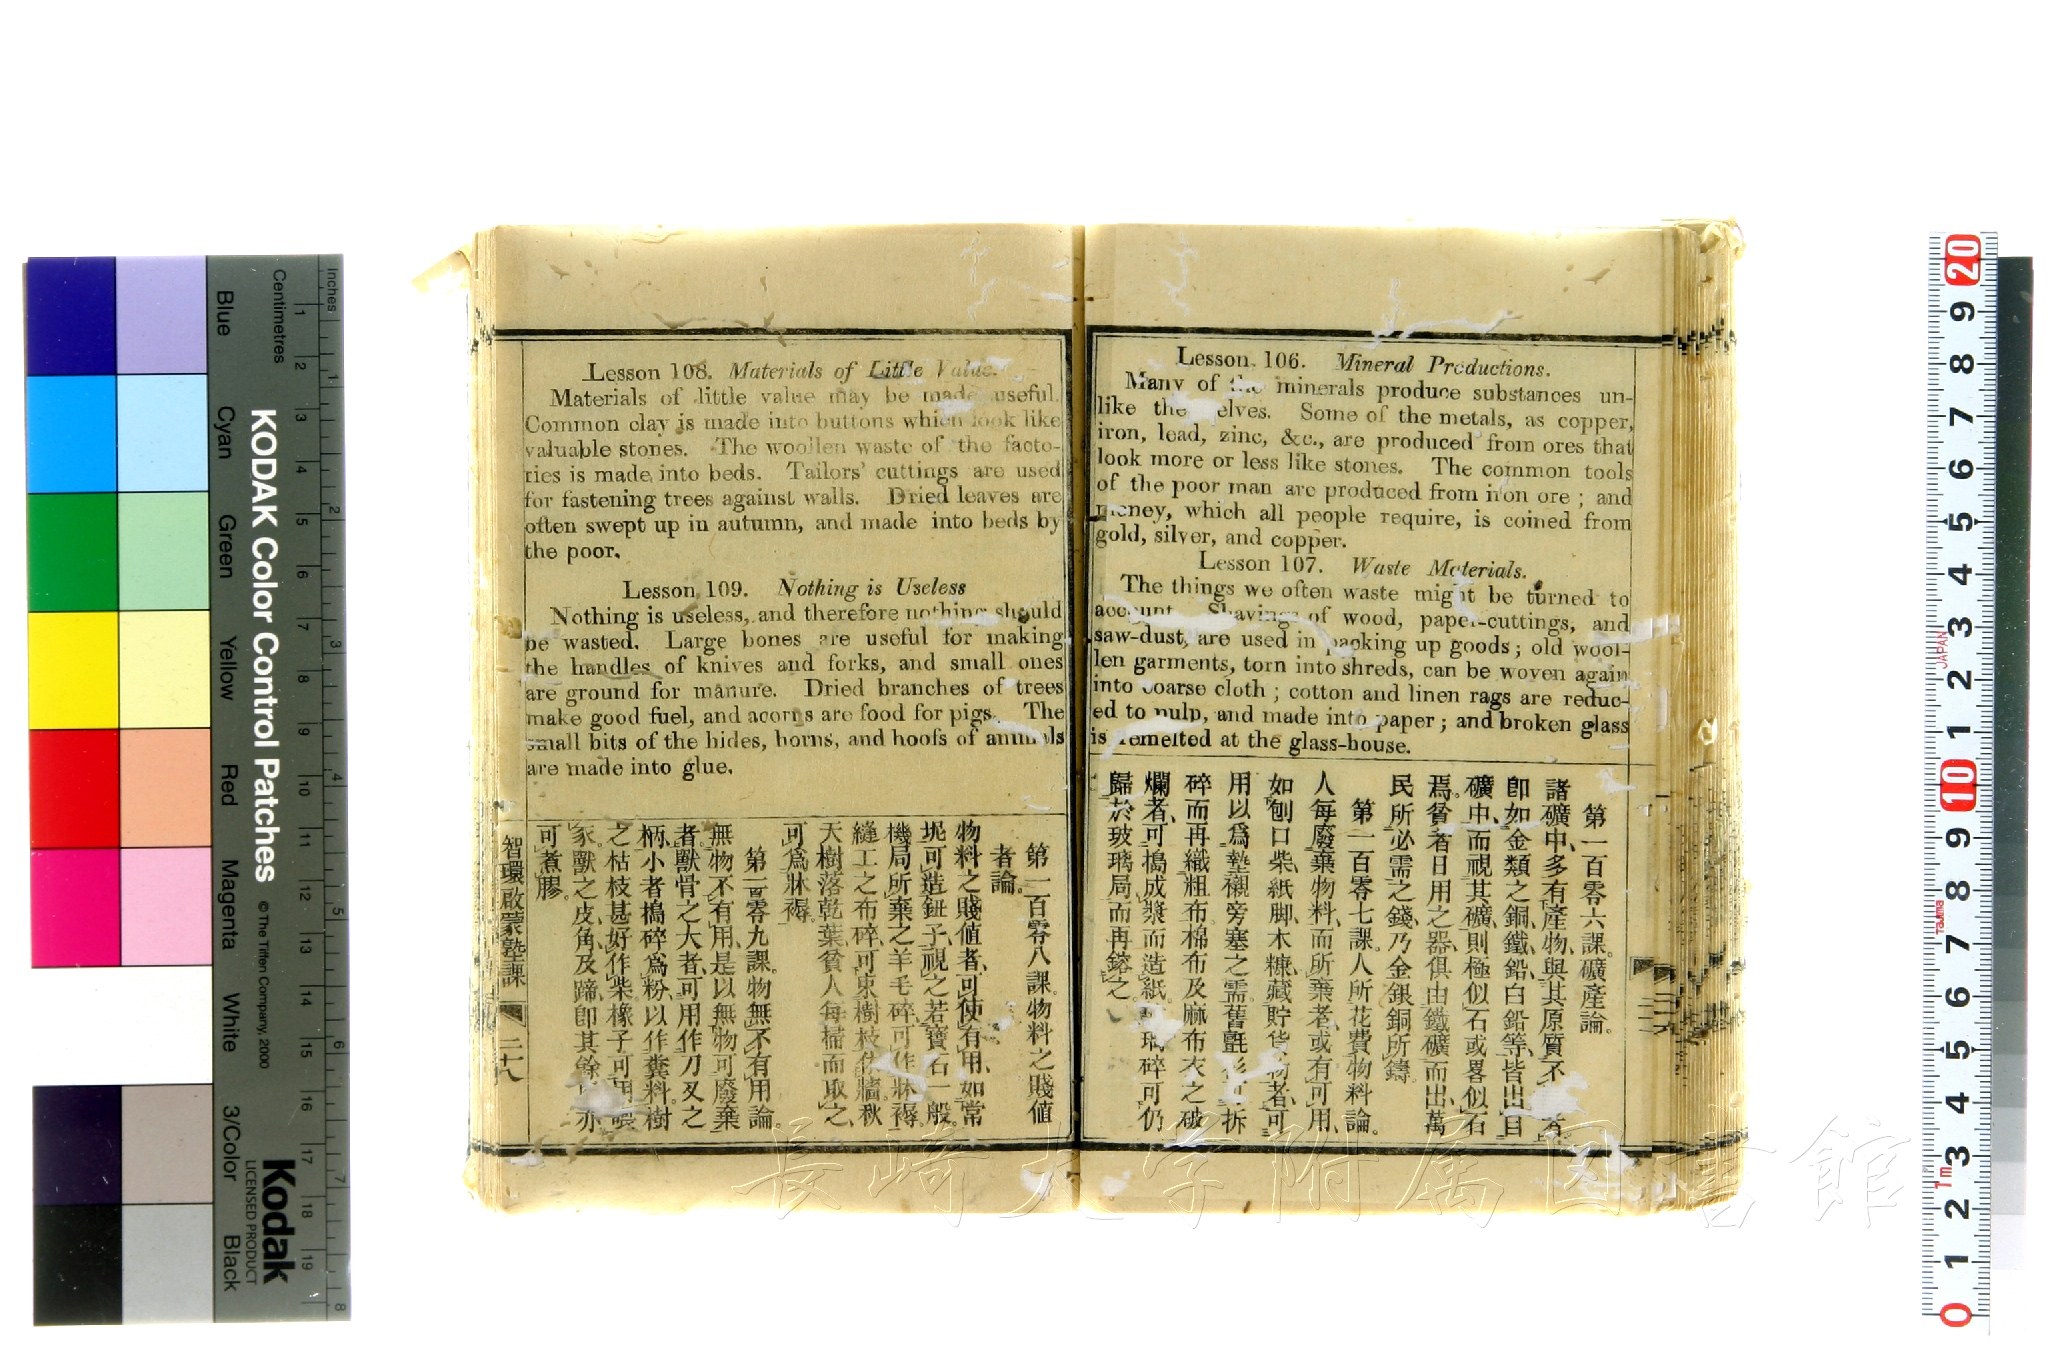 Lesson 106. Mineral Productions.
Many of the minerals produce substances un-
like the elves. Some of the metals, as copper,
iron, lead, zinc, &c., are produced from ores that
look more or less like stones. The common tools
of the poor man are produced from iron ore; and
money, which all people require, is coined from
gold, silver, and copper.
Lesson 107. Waste Materials.
The things we often waste might be turned to
account. Shavings of wood, paper-cuttings, and
saw-dust, are used in packing up goods; old wool-
len garments, torn into shreds, can be woven again
into coarse cloth; cotton and linen rags are reduc-
ed to pulp, and made into paper; and broken glass
is remelted at the glass-house.
第一百零六課。礦產論。
諸礦中、多有產物、與其原質不有。
卽如金類之銅、鐵、鉛、白鉛等、皆出自
礦中、而視其礦、則極似石或畧似石
焉。貧者日用之器、俱由鐵礦而出、萬
民所必需之錢、乃金銀銅所鑄。
第一百零七課。人所花費物料論。
人每廢棄物料、而所棄者、或有可用、
如刨口柴、紙脚、木糠、藏貯貨物者、可
用以爲墊襯旁塞之需。舊氈衫可拆
碎而再織粗布、棉布及麻布衣之破
爛者、可搗成漿而造紙。璃碎可仍
歸於玻璃局、而再鎔之。
Lesson 108. Materials of Little Value.
Materials of little value may be made useful.
Common clay is made into buttons which look like
valuable stones. The woollen waste of the facto-
ries is made into beds. Tailors' cuttings are used
for fastening trees against walls. Dried leaves are
often swept up in autumn, and made into beds by
the poor.
Lesson 109. Nothing is Useless
Nothing is useless, and therefore nothing should
be wasted. Large bones are useful for making
the handles of knives and forks, and small ones
are ground for manure. Dried branches of trees
make good fuel, and acorns are food for pigs. The
small bits of the hides, horns, and hoofs of animals
are made into glue.
第一百零八課。物料之賤値
者論。
物料之賤値者、可使有用、如常
坭可造鈕子、視之若寶石一般。
機局所棄之羊毛碎、可作牀褥。
縫工之布碎、可束樹枝於牆。秋
天樹落乾葉、貧人每掃而取之、
可爲牀褥。
第一百零九課。物無不有用論。
無物不有用、是以無物可廢棄
者。獸骨之大者、可用作刀叉之
柄、小者搗碎爲粉、以作糞料。樹
之枯枝甚好作柴、橡子可用喂
家、獸之皮、角、及蹄、卽其餘亦
可煮膠。
智環啟蒙塾課
二十八
KODAK Color Control Patches
© The Tiffen Company, 2000
Kodak
LICENSED PRODUCT
Inches
Centimetres
Blue
Cyan
Green
Yellow
Red
Magenta
White
3/Color
Black
長崎大学附属図書館
JAPAN